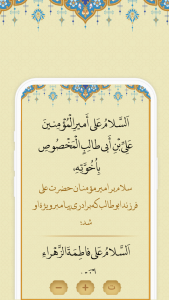 اَلسَّلامُ عَلی أَمیرِالْمُؤْمِنینَ
عَلِیِّ بْنِ أَبی طالِبٍ الْمَخْصُوصِ
بِأُخُوَّتِهِ،
سلام بر امیرمؤمنان حضرت علی
فرزند ابوطالب که برادری پیامبر ویژه او
شد؛
اَلسَّلامُ عَلی فاطِمَةَ الزَّهْراءِ